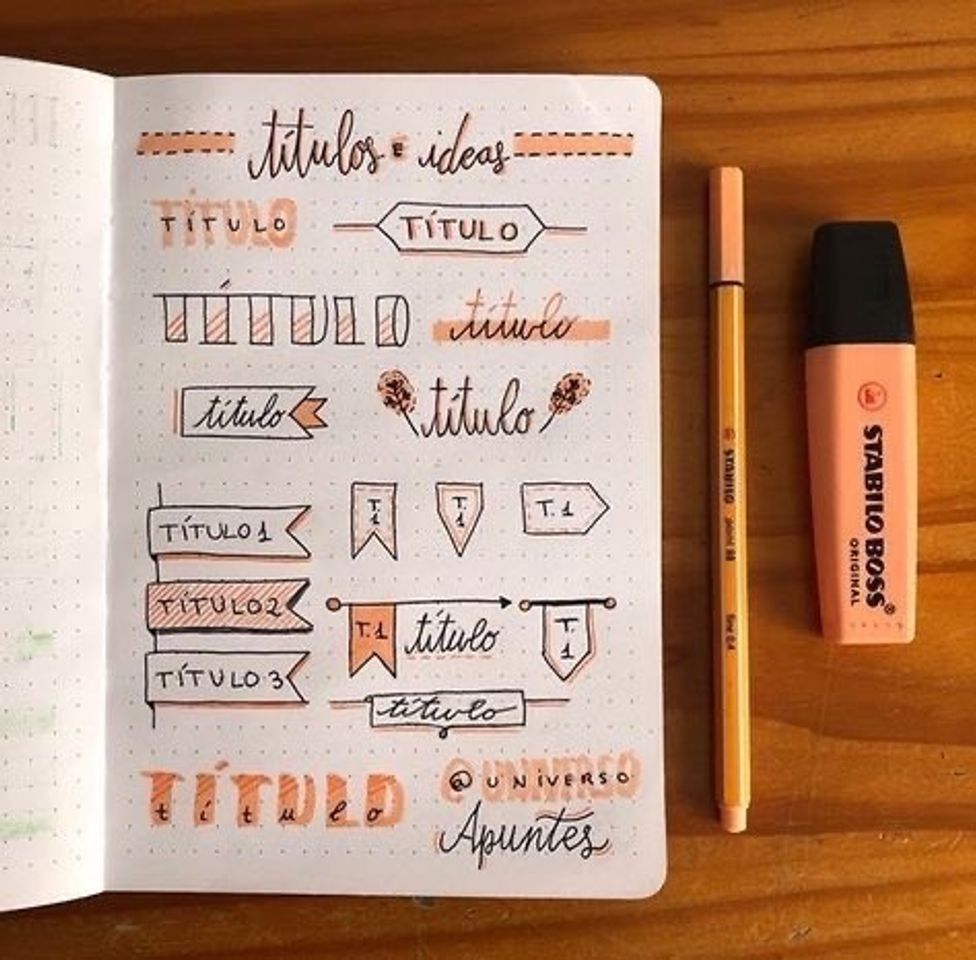 títulos e ideas
TÍTULO
TÍTULO
TÍTULO
título
título
título
TÍTULO 1
T.1
T.1
T.1
TÍTULO 2
T.1
título
T.1
TÍTULO 3
título
TÍTULO
título
@UNiVERSO
Apuntes
STABILO
STABILO BOSS®
ORIGINAL